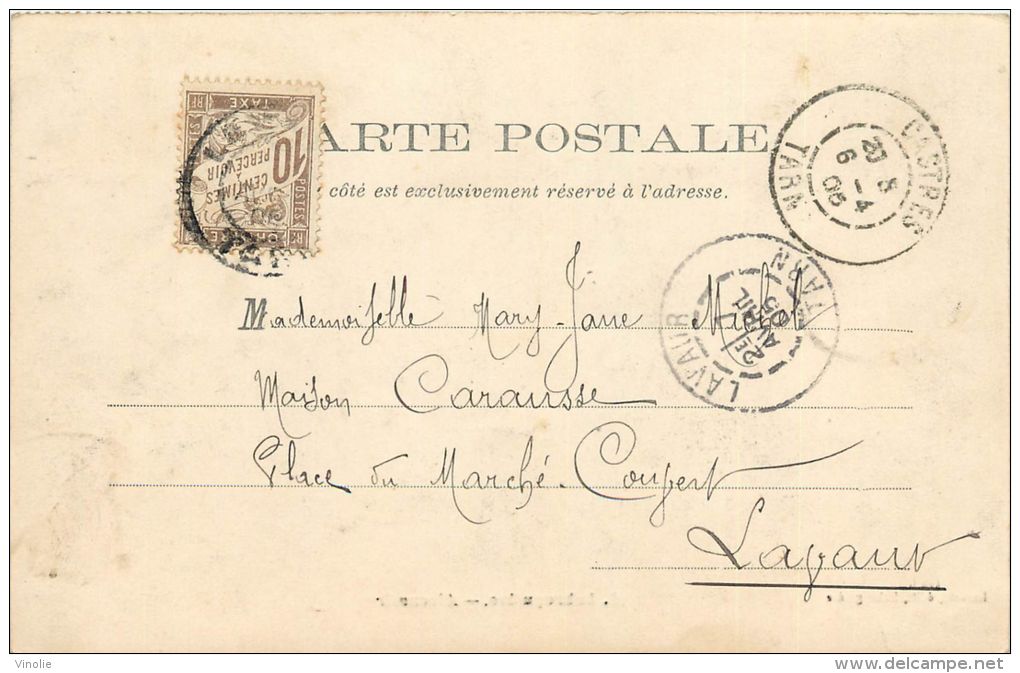 CARTE POSTALE
côté est exclusivement réservé à l'adresse.
CHIFFRE
POSTES
10
CENTIMES
À
PERCEVOIR
TAXE
RF
CASTRES
23 S
6 -4
05
TARN
LAVAUR
2E
AVRIL
05
TARN
Mademoiselle Mary-Jane Michel
Maison Carausse
Place du Marché-Couvert
Lavaur
Vinolie
www.delcampe.net